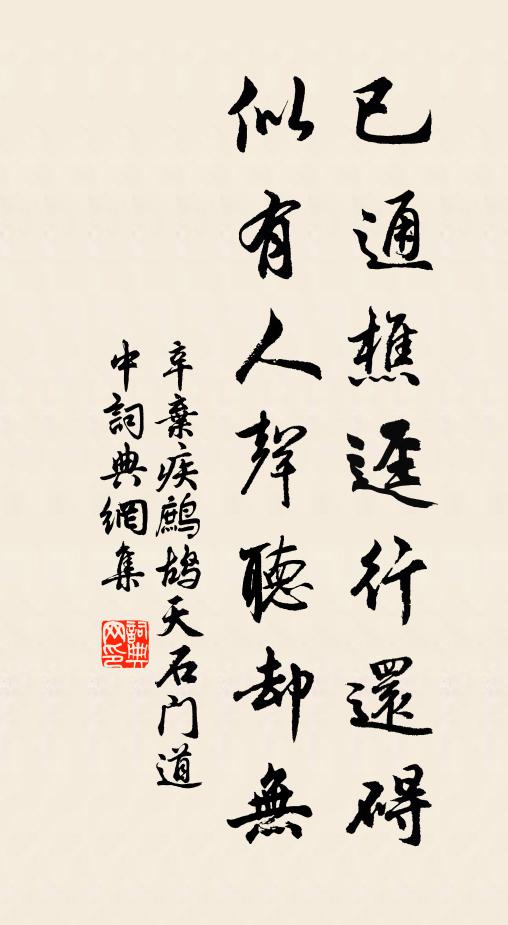 已通樵逕行還碍
似有人聲聽却無
辛棄疾鷓鴣天石门道
中詞典網集
詞典
网印